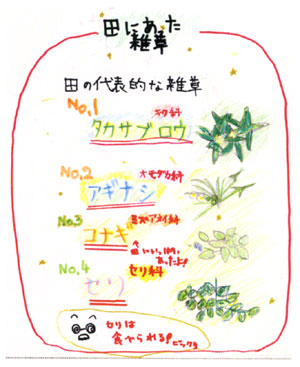 田にあった
雑草
田の代表的な雑草
No.1
キク科
タカサブロウ
No.2
オモダカ科
アギナシ
No.3
ミズアオイ科
コナギ
↑
田にいっぱい
あったよ!
No.4
セリ科
セリ
セリは
食べられる!
ビックリ